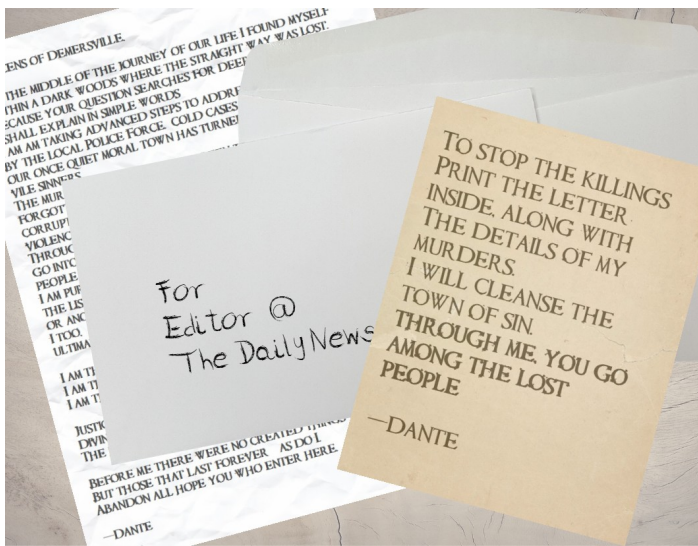 ENS OF DEMERSVILLE,
THE MIDDLE OF THE JOURNEY OF OUR LIFE I FOUND MYSELF
THIN A DARK WOODS WHERE THE STRAIGHT WAY WAS LOST.
ECAUSE YOUR QUESTION SEARCHES FOR DEEP
SHALL EXPLAIN IN SIMPLE WORDS
AM AM TAKING ADVANCED STEPS TO ADDRE
BY THE LOCAL POLICE FORCE. COLD CASES
OUR ONCE QUIET MORAL TOWN HAS TURNE
VILE SINNERS
THE MUR
FORGOT
CORRUP
VIOLENC
THROUG
GO INTO
PEOPLE
I AM PUR
THE LIS
OR ANO
I TOO,
ULTIMA
I AM TH
I AM T
I AM T
JUSTIC
DIVIN
THE
BEFORE ME THERE WERE NO CREATED THINGS
BUT THOSE THAT LAST FOREVER AS DO I.
ABANDON ALL HOPE YOU WHO ENTER HERE.
—DANTE
For
Editor @
The Daily News
TO STOP THE KILLINGS
PRINT THE LETTER
INSIDE, ALONG WITH
THE DETAILS OF MY
MURDERS.
I WILL CLEANSE THE
TOWN OF SIN.
THROUGH ME, YOU GO
AMONG THE LOST
PEOPLE
—DANTE